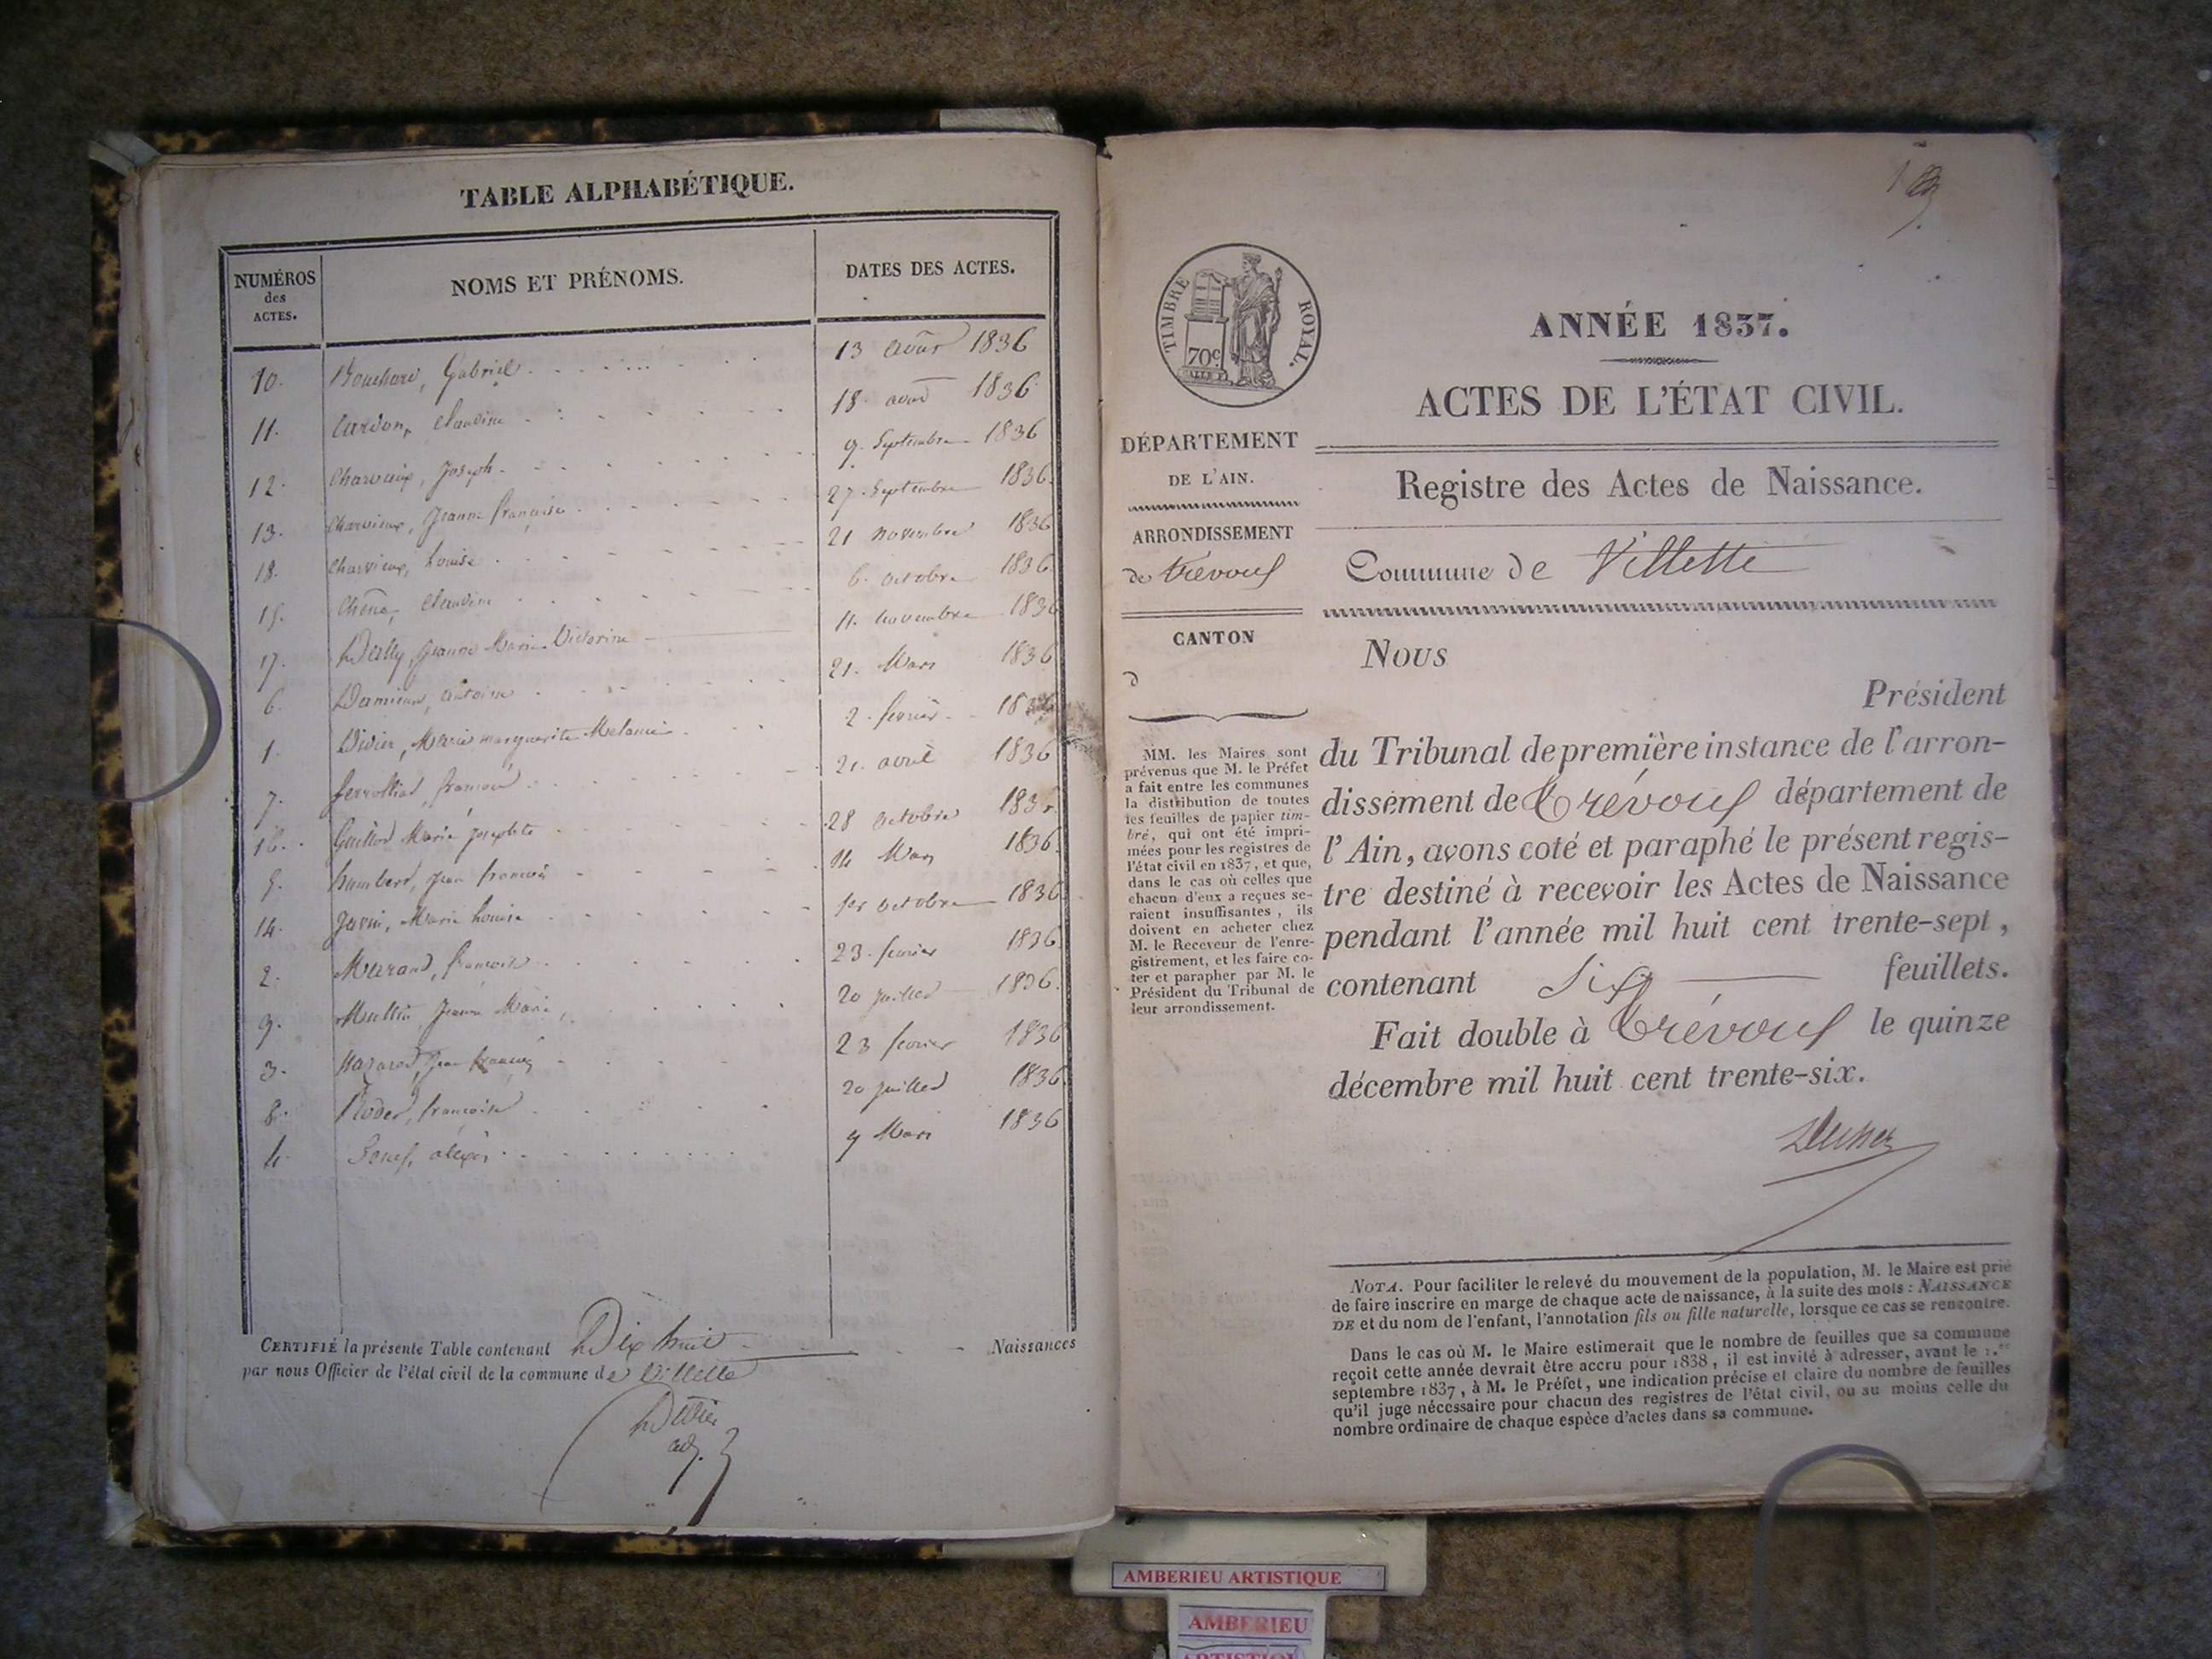 TABLE ALPHABÉTIQUE.
NUMÉROS des ACTES.
NOMS ET PRÉNOMS.
DATES DES ACTES.
10. Bouchard, Gabriel 13 août 1836
11. Cardon, Claudine 18 août 1836
12. Charvieux, Joseph 9. Septembre 1836
13. Charvieux, Jeanne françoise 27. Septembre 1836
18. Charvieux, Louise 21 novembre 1836
15. Chêne, Claudine 6. octobre 1836
17. Dally, Jeanne Marie Victorine 11. novembre 1836
6. Damians, antoine 21. Mars 1836
1. Didier, Marie marguerite Melanie 2. février
7. françois 21. avril 1836
16. Guillon Marie josephte 28 octobre
5. humbert, jean françois 14 Mars 1836
14. Marie Louise 1er octobre 1836
2. françois 23. février 1836
9. Jeanne Marie, 20 juillet 1836
3. Jean françois 23 février 1836
8. françoise 20 juillet 1836
4. 9 Mars 1836
CERTIFIÉ la présente Table contenant Dix huit Naissances
par nous Officier de l'état civil de la commune de Villette
Didier
adj.
TIMBRE ROYAL.
70c
ANNÉE 1837.
ACTES DE L'ÉTAT CIVIL.
DÉPARTEMENT
DE L'AIN.
Registre des Actes de Naissance.
ARRONDISSEMENT
de trévoux
Commune de Villette
CANTON
d
Nous
Président
du Tribunal de première instance de l'arron-
dissement de Trévoux département de
l'Ain, avons coté et paraphé le présent regis-
tre destiné à recevoir les Actes de Naissance
pendant l'année mil huit cent trente-sept,
contenant Six feuillets.
Fait double à Trévoux le quinze
décembre mil huit cent trente-six.
MM. les Maires sont
prévenus que M. le Préfet
a fait entre les communes
la distribution de toutes
les feuilles de papier tim-
bré, qui ont été impri-
mées pour les registres de
l'état civil en 1837, et que,
dans le cas où celles que
chacun d'eux a reçues se-
raient insuffisantes, ils
doivent en acheter chez
M. le Receveur de l'enre-
gistrement, et les faire co-
ter et parapher par M. le
Président du Tribunal de
leur arrondissement.
NOTA. Pour faciliter le relevé du mouvement de la population, M. le Maire est prié
de faire inscrire en marge de chaque acte de naissance, à la suite des mots : NAISSANCE
DE et du nom de l'enfant, l'annotation fils ou fille naturelle, lorsque ce cas se rencontre.
Dans le cas où M. le Maire estimerait que le nombre de feuilles que sa commune
reçoit cette année devrait être accru pour 1838, il est invité à adresser, avant le 1.er
septembre 1837, à M. le Préfet, une indication précise et claire du nombre de feuilles
qu'il juge nécessaire pour chacun des registres de l'état civil, ou au moins celle du
nombre ordinaire de chaque espèce d'actes dans sa commune.
AMBERIEU ARTISTIQUE
AMBERIEU
ARTISTIQUE